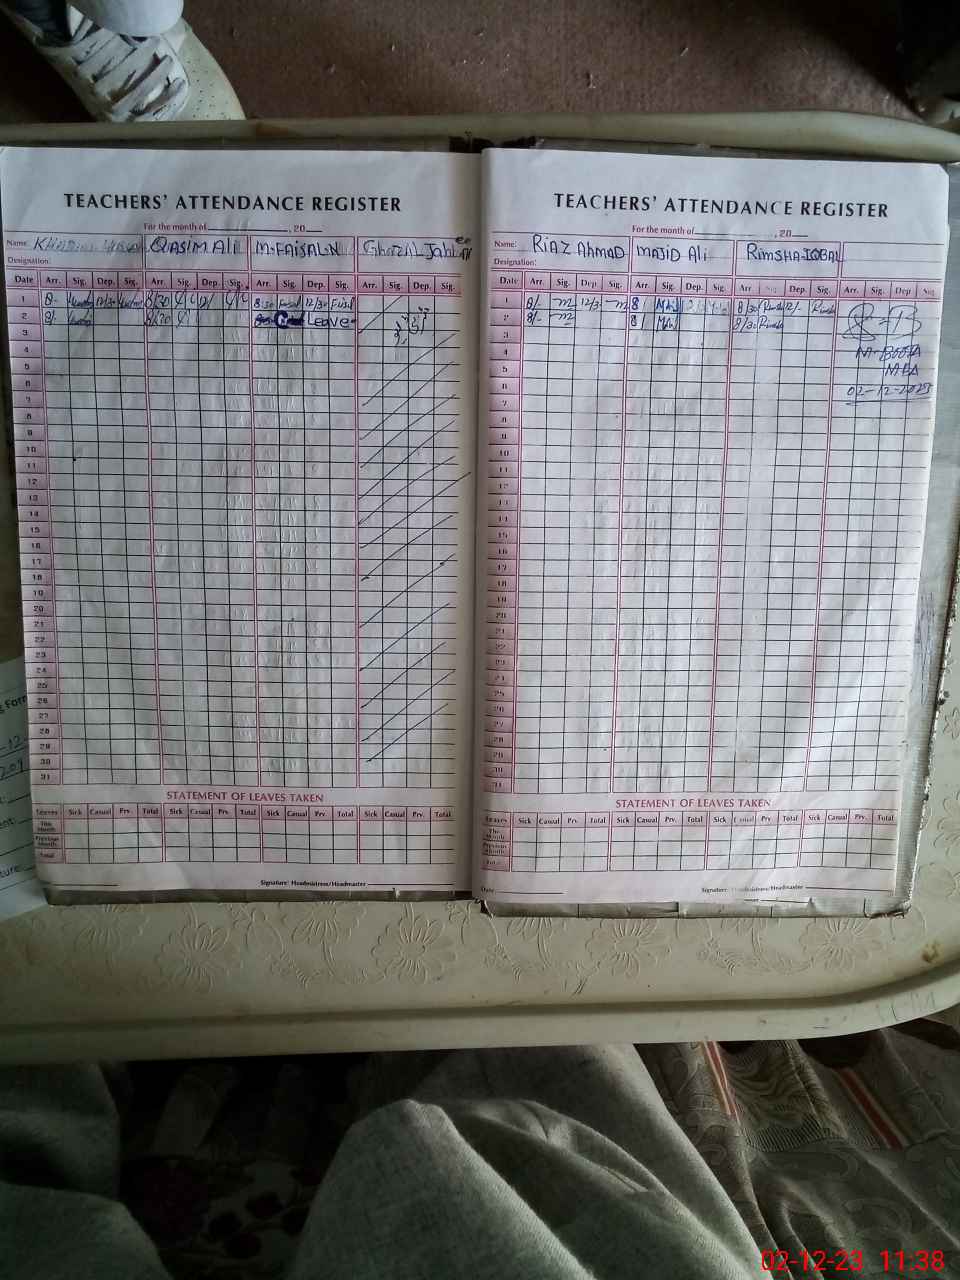 TEACHERS' ATTENDANCE REGISTER
For the month of , 20
Name: QASIM Ali M.FAISAL.N
Designation:
Date Arr. Sig. Dep. Sig. Arr. Sig. Dep. Sig. Arr. Sig. Dep. Sig. Arr. Sig. Dep. Sig.
1 8- 12/30 8/30 12/ 8:30 Faisal 12/30 Faisal
2 8/- 8/30 C Leave
3
4
5
6
7
8
9
10
11
12
13
14
15
16
17
18
19
20
21
22
23
24
25
26
27
28
29
30
31
STATEMENT OF LEAVES TAKEN
Leaves Sick Casual Prv. Total Sick Casual Prv. Total Sick Casual Prv. Total Sick Casual Prv. Total
This Month
Previous Month
Total
Signature: Headmistress/Headmaster
TEACHERS' ATTENDANCE REGISTER
For the month of , 20
Name: RIAZ AHMAD MAJID Ali RIMSHA-IQBAL
Designation:
Date Arr. Sig. Dep. Sig. Arr. Sig. Dep. Sig. Arr. Sig. Dep. Sig. Arr. Sig. Dep. Sig.
1 8/- 12/30 8 8/30 Rimsha 12/- Rimsha
2 8/- 8 8/30 Rimsha
3
4 M-BOOTA
5 MEA
6 02-12-2023
7
8
9
10
11
12
13
14
15
16
17
18
19
20
21
22
23
24
25
26
27
28
29
30
31
STATEMENT OF LEAVES TAKEN
Leaves Sick Casual Prv. Total Sick Casual Prv. Total Sick Casual Prv. Total Sick Casual Prv. Total
This Month
Previous Month
Total
Date: Signature: Headmistress/Headmaster
g Form
02-12-23 11:38